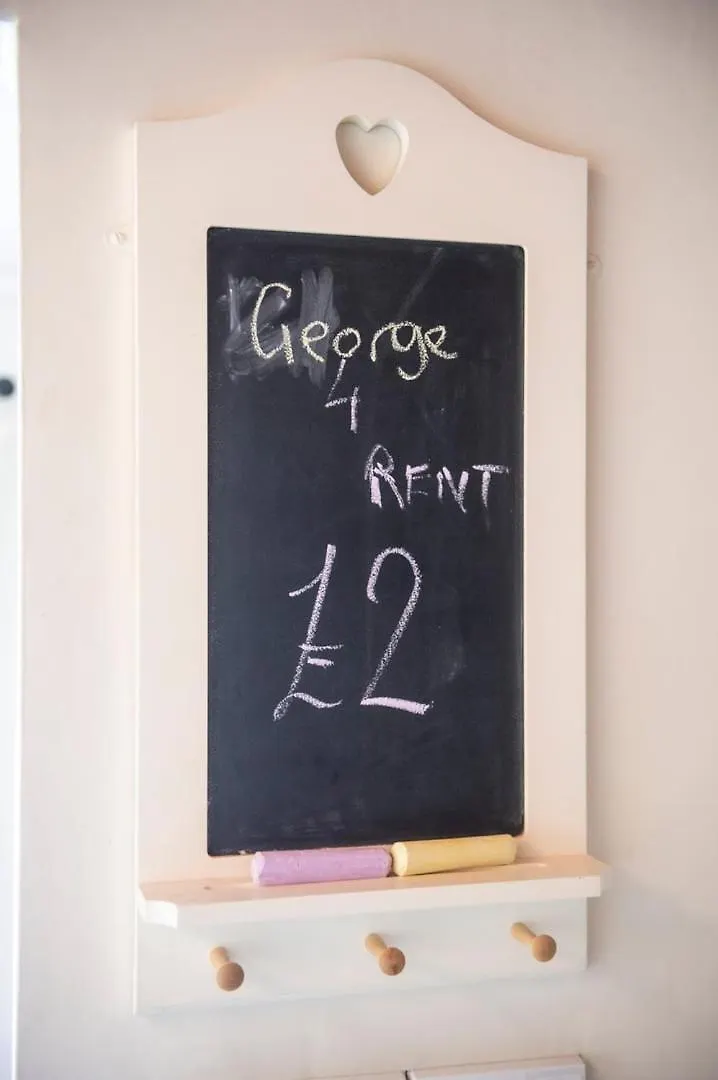 George
4
RENT
£2